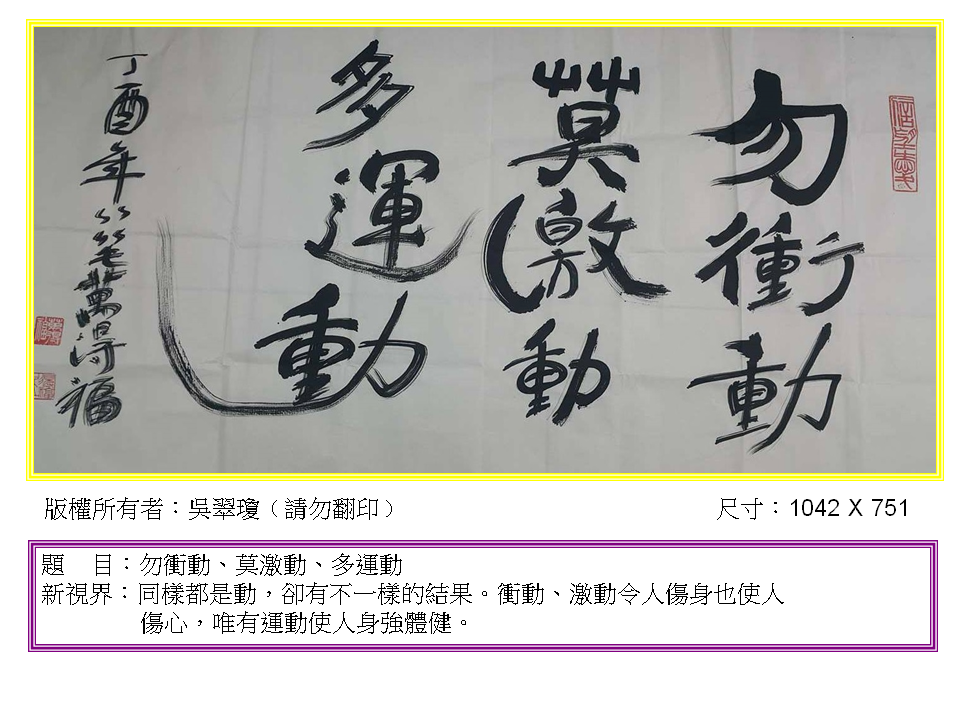 勿衝動
莫激動
多運動
丁酉年
版權所有者：吳翠瓊（請勿翻印）
尺寸：1042 X 751
題　目：勿衝動、莫激動、多運動
新視界：同樣都是動，卻有不一樣的結果。衝動、激動令人傷身也使人
傷心，唯有運動使人身強體健。